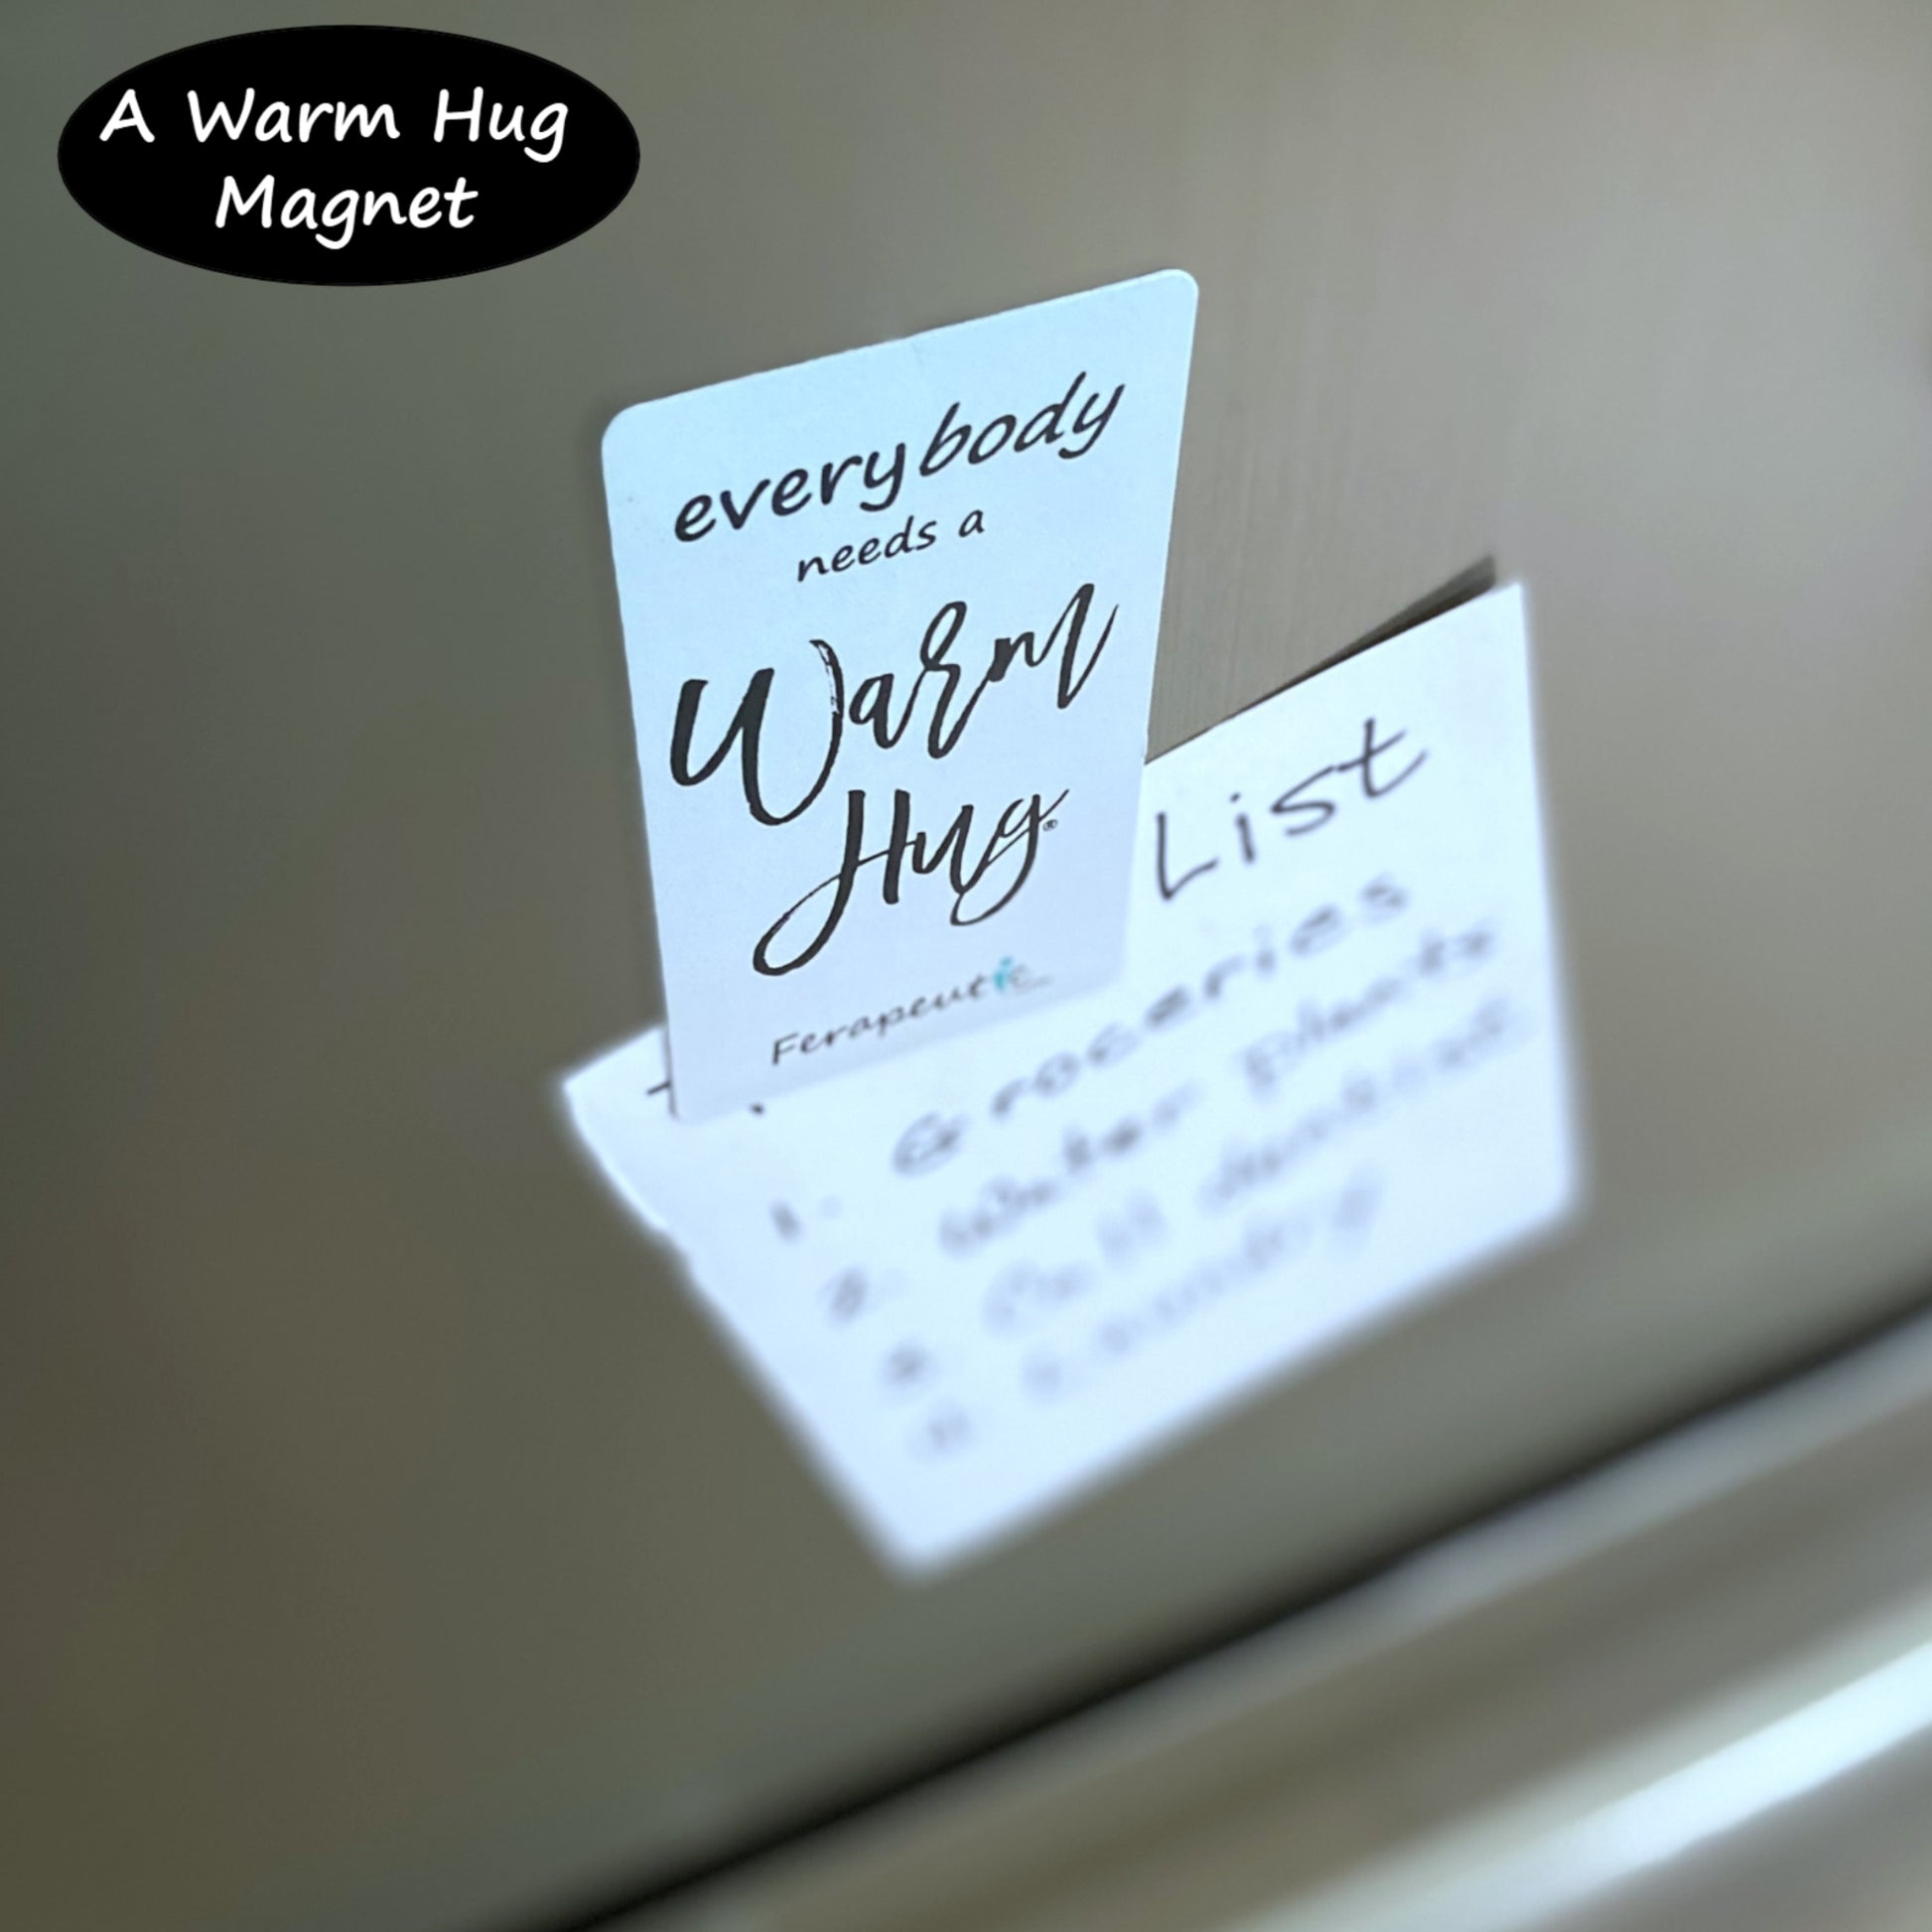 A Warm Hug
Magnet
everybody
needs a
Warm
Hug®
Ferapeutic
List
1. Groceries
2. Water plants
Call dentist
Laundry